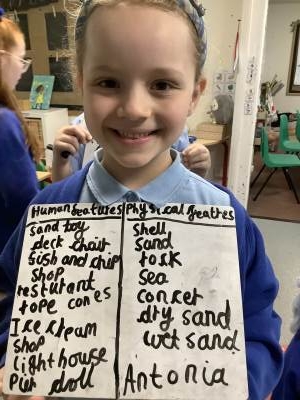 Human features
sand toy
deck chair
fish and chip
shop
resturant
rope cones
Ice cream
shop
lighthouse
Pier doll
Physical feathres
shell
sand
rock
sea
dry sand
wet sand
Antonia